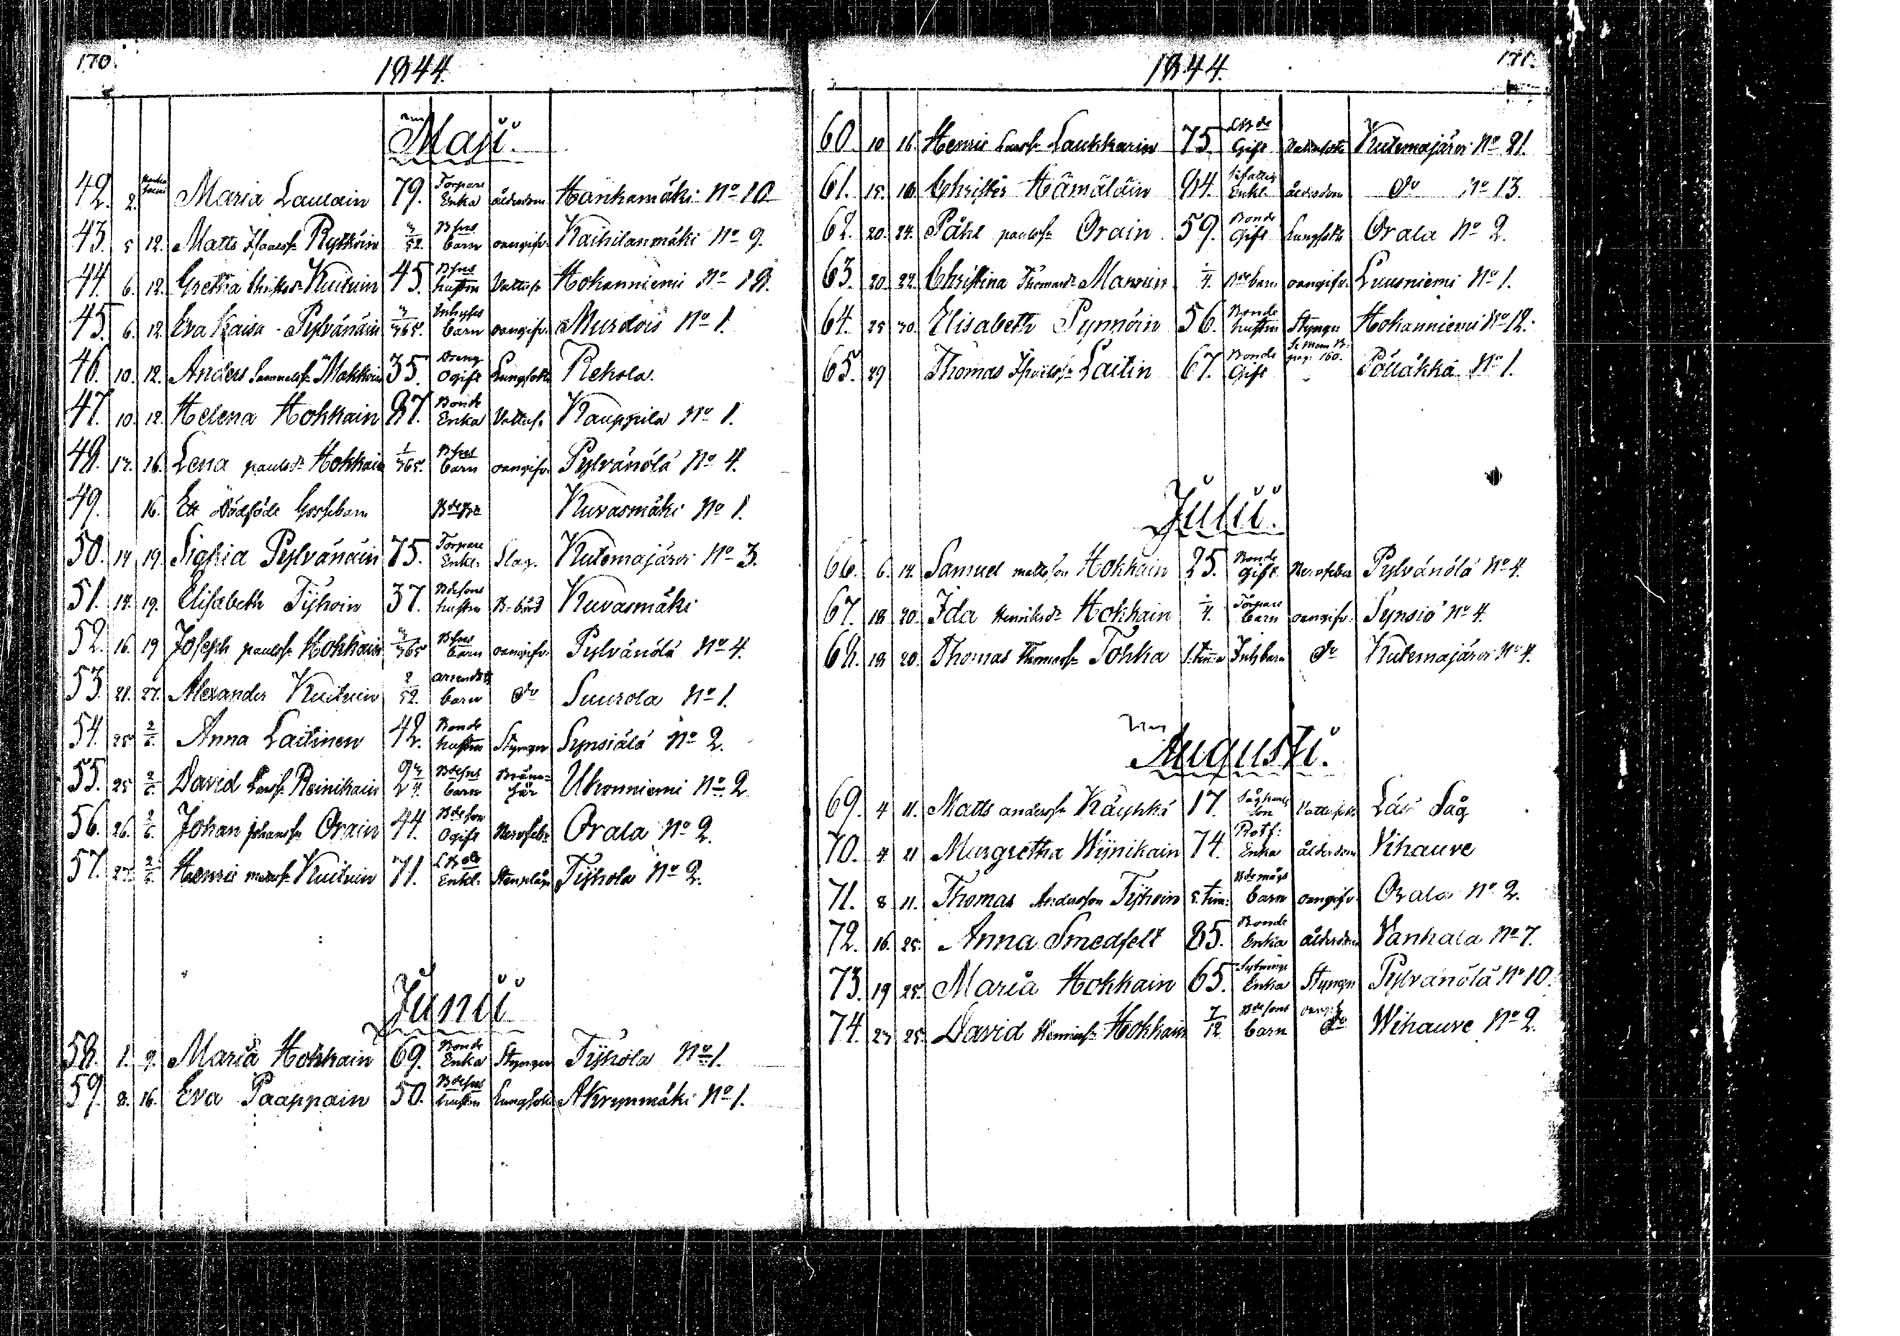 170.
1844.
Maji.
42. 2. Maria Laulain 79. Torpare Enka ålderdom Hankamäki No 10
43. 5 12. Matts Isaacss. Rytköin 3/52. Bsons barn oangifv. Kaihilanmäki No 9.
44. 6. 12. Gretha Christersdr Kuituin 45. Bsons hustru Vattus. Hokanniemi No 18.
45. 6. 12. Eva Kaisa Pylvänäin 3/365. Inhyses barn oangifv. Murdois No 1.
46. 10. 12. Anders Sammelss. Makkoin 35. Dreng Ogift Lungsot Rehola.
47. 10. 12. Helena Hokkain 87. Bonde Enka Vattus. Kauppila No 1.
48. 12. 16. Lena paulsdr Hokkain 1/365. Bsons barn oangifv. Pylvänälä No 4.
49. 16. Ett dödföde Gossebarn Kuvasmäki No 1.
50. 14 19. Sigfrid Pylvänäin 75. Torpare Enkl. Slag. Kutemajärvi No 3.
51. 14. 19. Elisabeth Tyhoin 37. Bdesons hustru B-börd Kuvasmäki
52. 16. 19 Joseph paulss. Hokkain 3/365 Bsons barn oangifv. Pylvänälä No 4.
53. 21. 27. Alexander Kuituin 2/52. barn do Suurola No 1.
54. 25 2/6. Anna Laitinen 42. Bonde hustru Styngn Synsiälä No 2.
55. 25 2/6. David Larss. Reinikain 2 3/4. Bdesons barn Ukonniemi No 2
56. 26. 2/6. Johan Johanss. Orain 44. Bdeson Ogift Nervfeb. Orala No 2.
57. 27. 2/6. Henric Kuituin 71. Enkl. Stenplåga Tyhola No 2.
Junii
58. 1. 9. Maria Hokkain 69. Bonde Enka Styngn Tyhola No 1.
59. 8. 16. Eva Paappain 50. Bdesons hustru Lungsot Akrynmäki No 1.
171.
1844.
60 10 16. Henric Larss. Laukkarin 75. Gift Vattusot Kutemajärvi No 21.
61. 15. 16. Christer Hämäläin 84. Enkl. ålderdom do No 13.
62. 20. 24. Påhl paulss. Orain 59. Bonde Gift Lungsot Orala No 2.
63. 20. 22. Christina Thomasdr Manuin 1/4. Bde barn oangifv. Luusniemi No 1.
64. 25 30. Elisabeth Pynnöin 56. Bonde hustru Styngn Hokanniemi No 12.
65. 29 Thomas Laitin 67. Bonde Gift pag: 160. Pöllökkä No 1.
Julii.
66. 6. 14. Samuel mattsson Hokkain 25. Bonde Gift Nervfeber Pylvänälä No 4.
67. 18 20. Ida Henriksdr Hokkain 1/4. Torpare barn oangifv. Synsiö No 4.
68. 18 20. Thomas Thomass. Tohka Inh. barn do Kutemajärvi No 4.
Augusti.
69. 4 11. Matts anderss. Käyhkö 17. son Vattusot Läsi Såg
70. 4 11 Margretha Wijnikain 74. Enka ålderdom Vihauve
71. 8 11. Thomas Andersson Tyhoin 5. tim: barn oangifv. Orala No 2.
72. 16. 25. Anna Smedfelt 85. Bonde Enka ålderdom Vanhala No 7.
73. 19 25. Maria Hokkain 65. Enka Styngn Pylvänälä No 10.
74. 23 25. David Henricss. Hokkain 7/12 Bdesons barn oangifv. do Wihauve No 2.